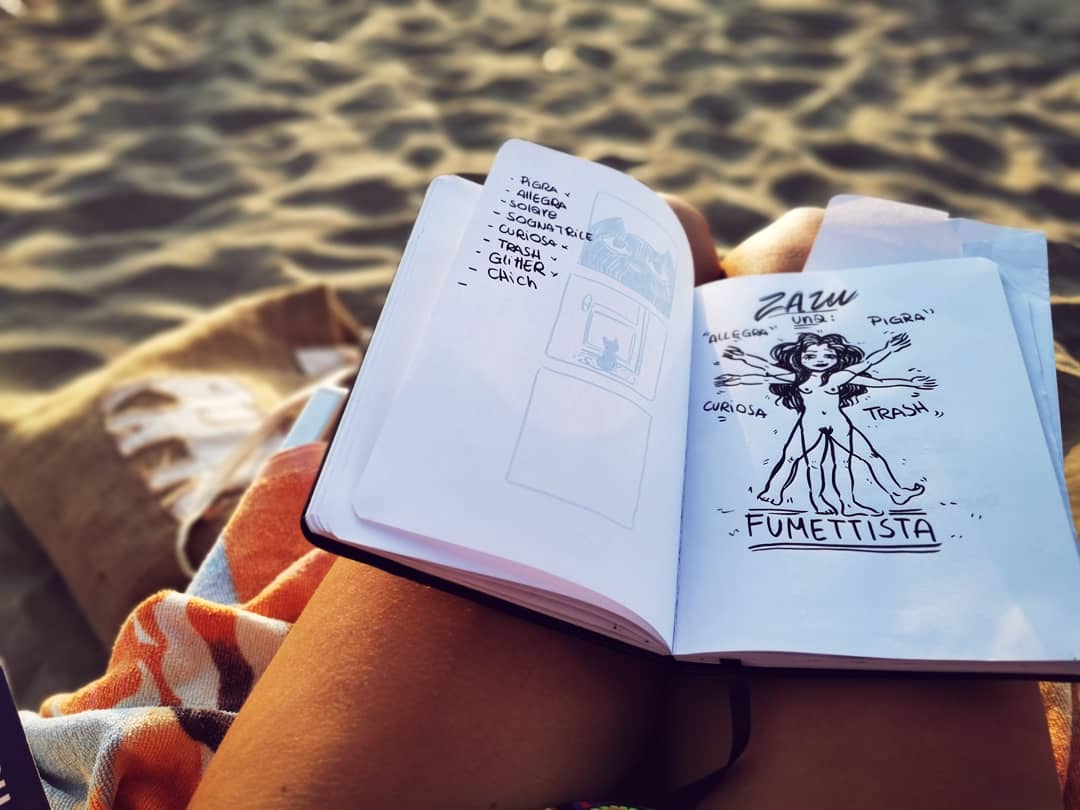 - PIGRA
- AllEGRA
- SOlARE
- SOGNATRICE
- CURIOSA
- TRASH
- GlittER
- CHich
-
ZAZU
UNA:
"ALLEGRA" PIGRA"
CURIOSA TRASH
FUMETTISTA